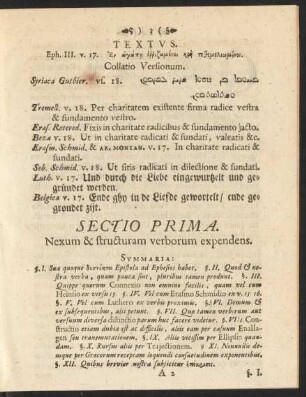 ) 3 (
TEXTVS.
Eph. III. v. 17. Ἐν ἀγάπῃ ἐῤῥιζωμένοι καὶ τεθεμελιωμένοι.
Collatio Versionum.
Syriaca Gutbier. vs. 18.
Tremell. v. 18. Per charitatem existente firma radice vestra
& fundamento vestro.
Eras. Roterod. Fitis in charitate radicibus & fundamento jacto.
Beza v. 18. Ut in charitate radicati & fundati, valeatis &c.
Erasm. Schmid. & AR. MONTAN. v. 17. In charitate radicati &
fundati.
Seb. Schmid. v. 18. Ut sitis radicati in dilectione & fundati.
Luth. v. 17. Und durch die Liebe eingewurtzelt und ge-
gründet werden.
Belgica v. 17. Ende ghy in de Liefde gewortelt / ende ge-
grondet zijt.
SECTIO PRIMA.
Nexum & structuram verborum expendens.
SUMMARIA:
§. I. Sua quoque brevium Epistola ad Ephesios habet, §. II. Quod & no-
stra verba, quam pauca sint, pluribus tamen produnt. §. III.
Quippe quorum Connexio non omnino facilis, quam vel cum
Heinsio ex versu 15 §. IV. Vel cum Erasmo Schmidio ex v. 15 16.
§. V. Vel cum Luthero ex verbis proximis. §. VI. Demum &
ex subsequentibus, alii petunt. §. VII. Qua tamen verborum aut
versuum diversa distinctio parum huc facere videtur. §. VIII. Con-
structio etiam dubia est ac difficilis, aliis eam per casuum Enalla-
gen seu transmutationem, §. IX. Aliis vocum per Ellipsin quan-
dam, §. X. Rursus aliis per Trajectionem. §. XI Nonnullis de-
nique per Græcorum receptam loquendi consuetudinem exponentibus.
§. XII. Quibus brevior nostra subjicitur
A 2 §. I.